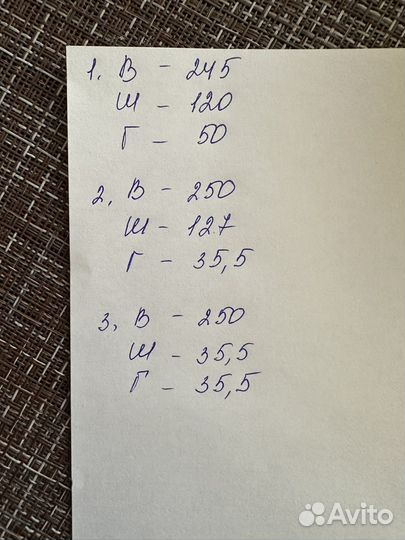 1. В - 245
Ш - 120
Г - 50
2. В - 250
Ш - 127
Г - 35,5
3. В - 250
Ш - 35,5
Г - 35,5
Avito